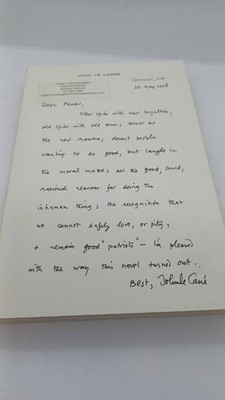 JOHN LE CARRÉ
Cornwall, UK
20 May 2008
Dear Reader,
New spies with new loyalties,
old spies with old ones; terror as
the new mantra; decent people
wanting to do good, but caught in
the moral maze; all the good, sound,
rational reasons for doing the
inhuman thing; the recognition that
we cannot safely love, or pity,
& remain good "patriots" — I'm pleased
with the way this novel turned out.
Best, John le Carré